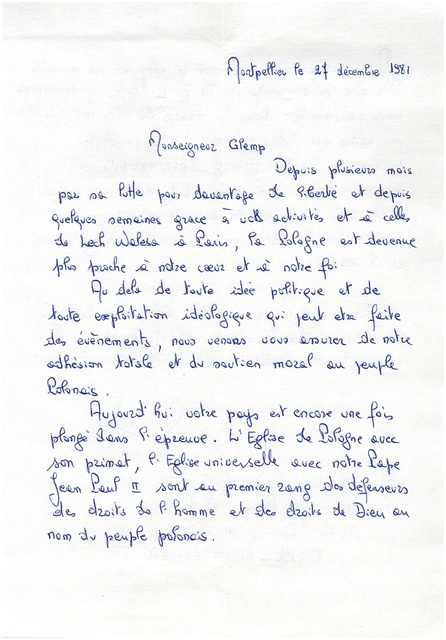 Montpellier le 27 décembre 1981
Monseigneur Glemp
Depuis plusieurs mois
par sa lutte pour davantage de liberté et depuis
quelques semaines grace à vos activités et à celles
de Lech Walesa à Paris, la Pologne est devenue
plus proche à notre cœur et à notre foi.
Au delà de toute idée politique et de
toute exploitation idéologique qui peut etre faite
des évènements, nous venons vous assurer de notre
adhésion totale et du soutien moral au peuple
Polonais.
Aujourd'hui votre pays est encore une fois
plongé dans l'épreuve. L'Eglise de Pologne avec
son primat, l'Eglise universelle avec notre Pape
Jean Paul II sont au premier rang des défenseurs
des droits de l'homme et des droits de Dieu au
nom du peuple polonais.